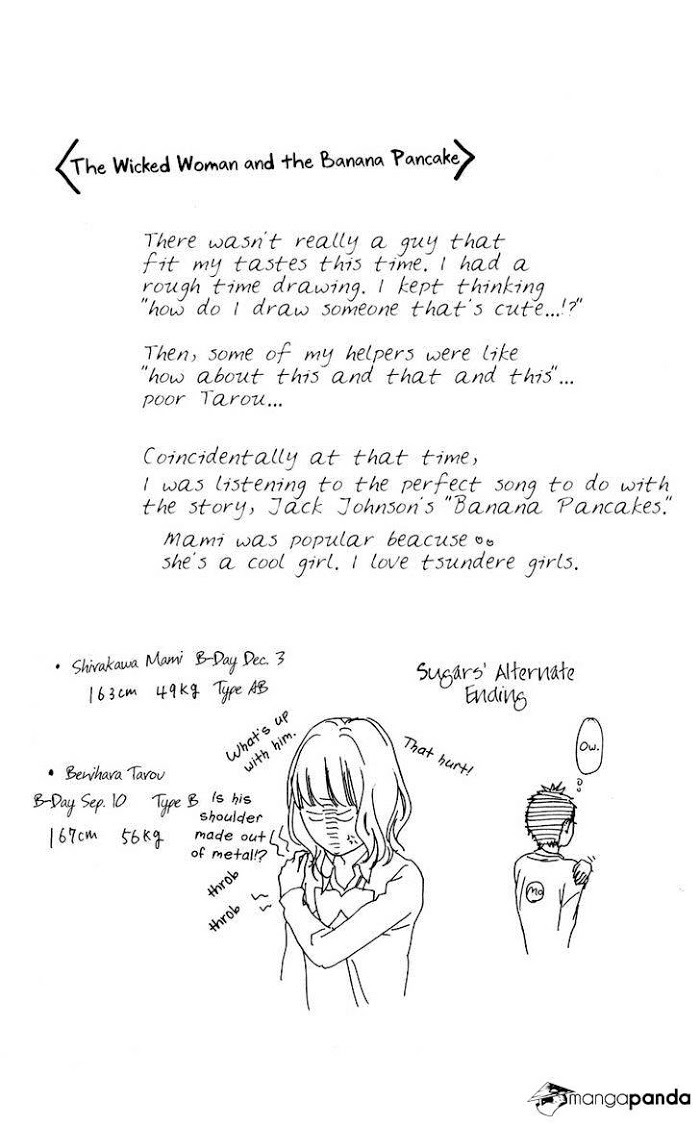 The Wicked Woman and the Banana Pancake
There wasn't really a guy that
fit my tastes this time. I had a
rough time drawing. I kept thinking
"how do I draw someone that's cute...!?"
Then, some of my helpers were like
"how about this and that and this"...
poor Tarou...
Coincidentally at that time,
I was listening to the perfect song to do with
the story, Jack Johnson's "Banana Pancakes."
Mami was popular beacuse
she's a cool girl. I love tsundere girls.
• Shirakawa Mami B-Day Dec. 3
163cm 49kg Type AB
• Benihara Tarou
B-Day Sep. 10 Type B
167cm 56kg
Sugars' Alternate
Ending
What's up
with him.
That hurt!
Is his
shoulder
made out
of metal!?
throb
throb
Ow.
Mo
mangapanda